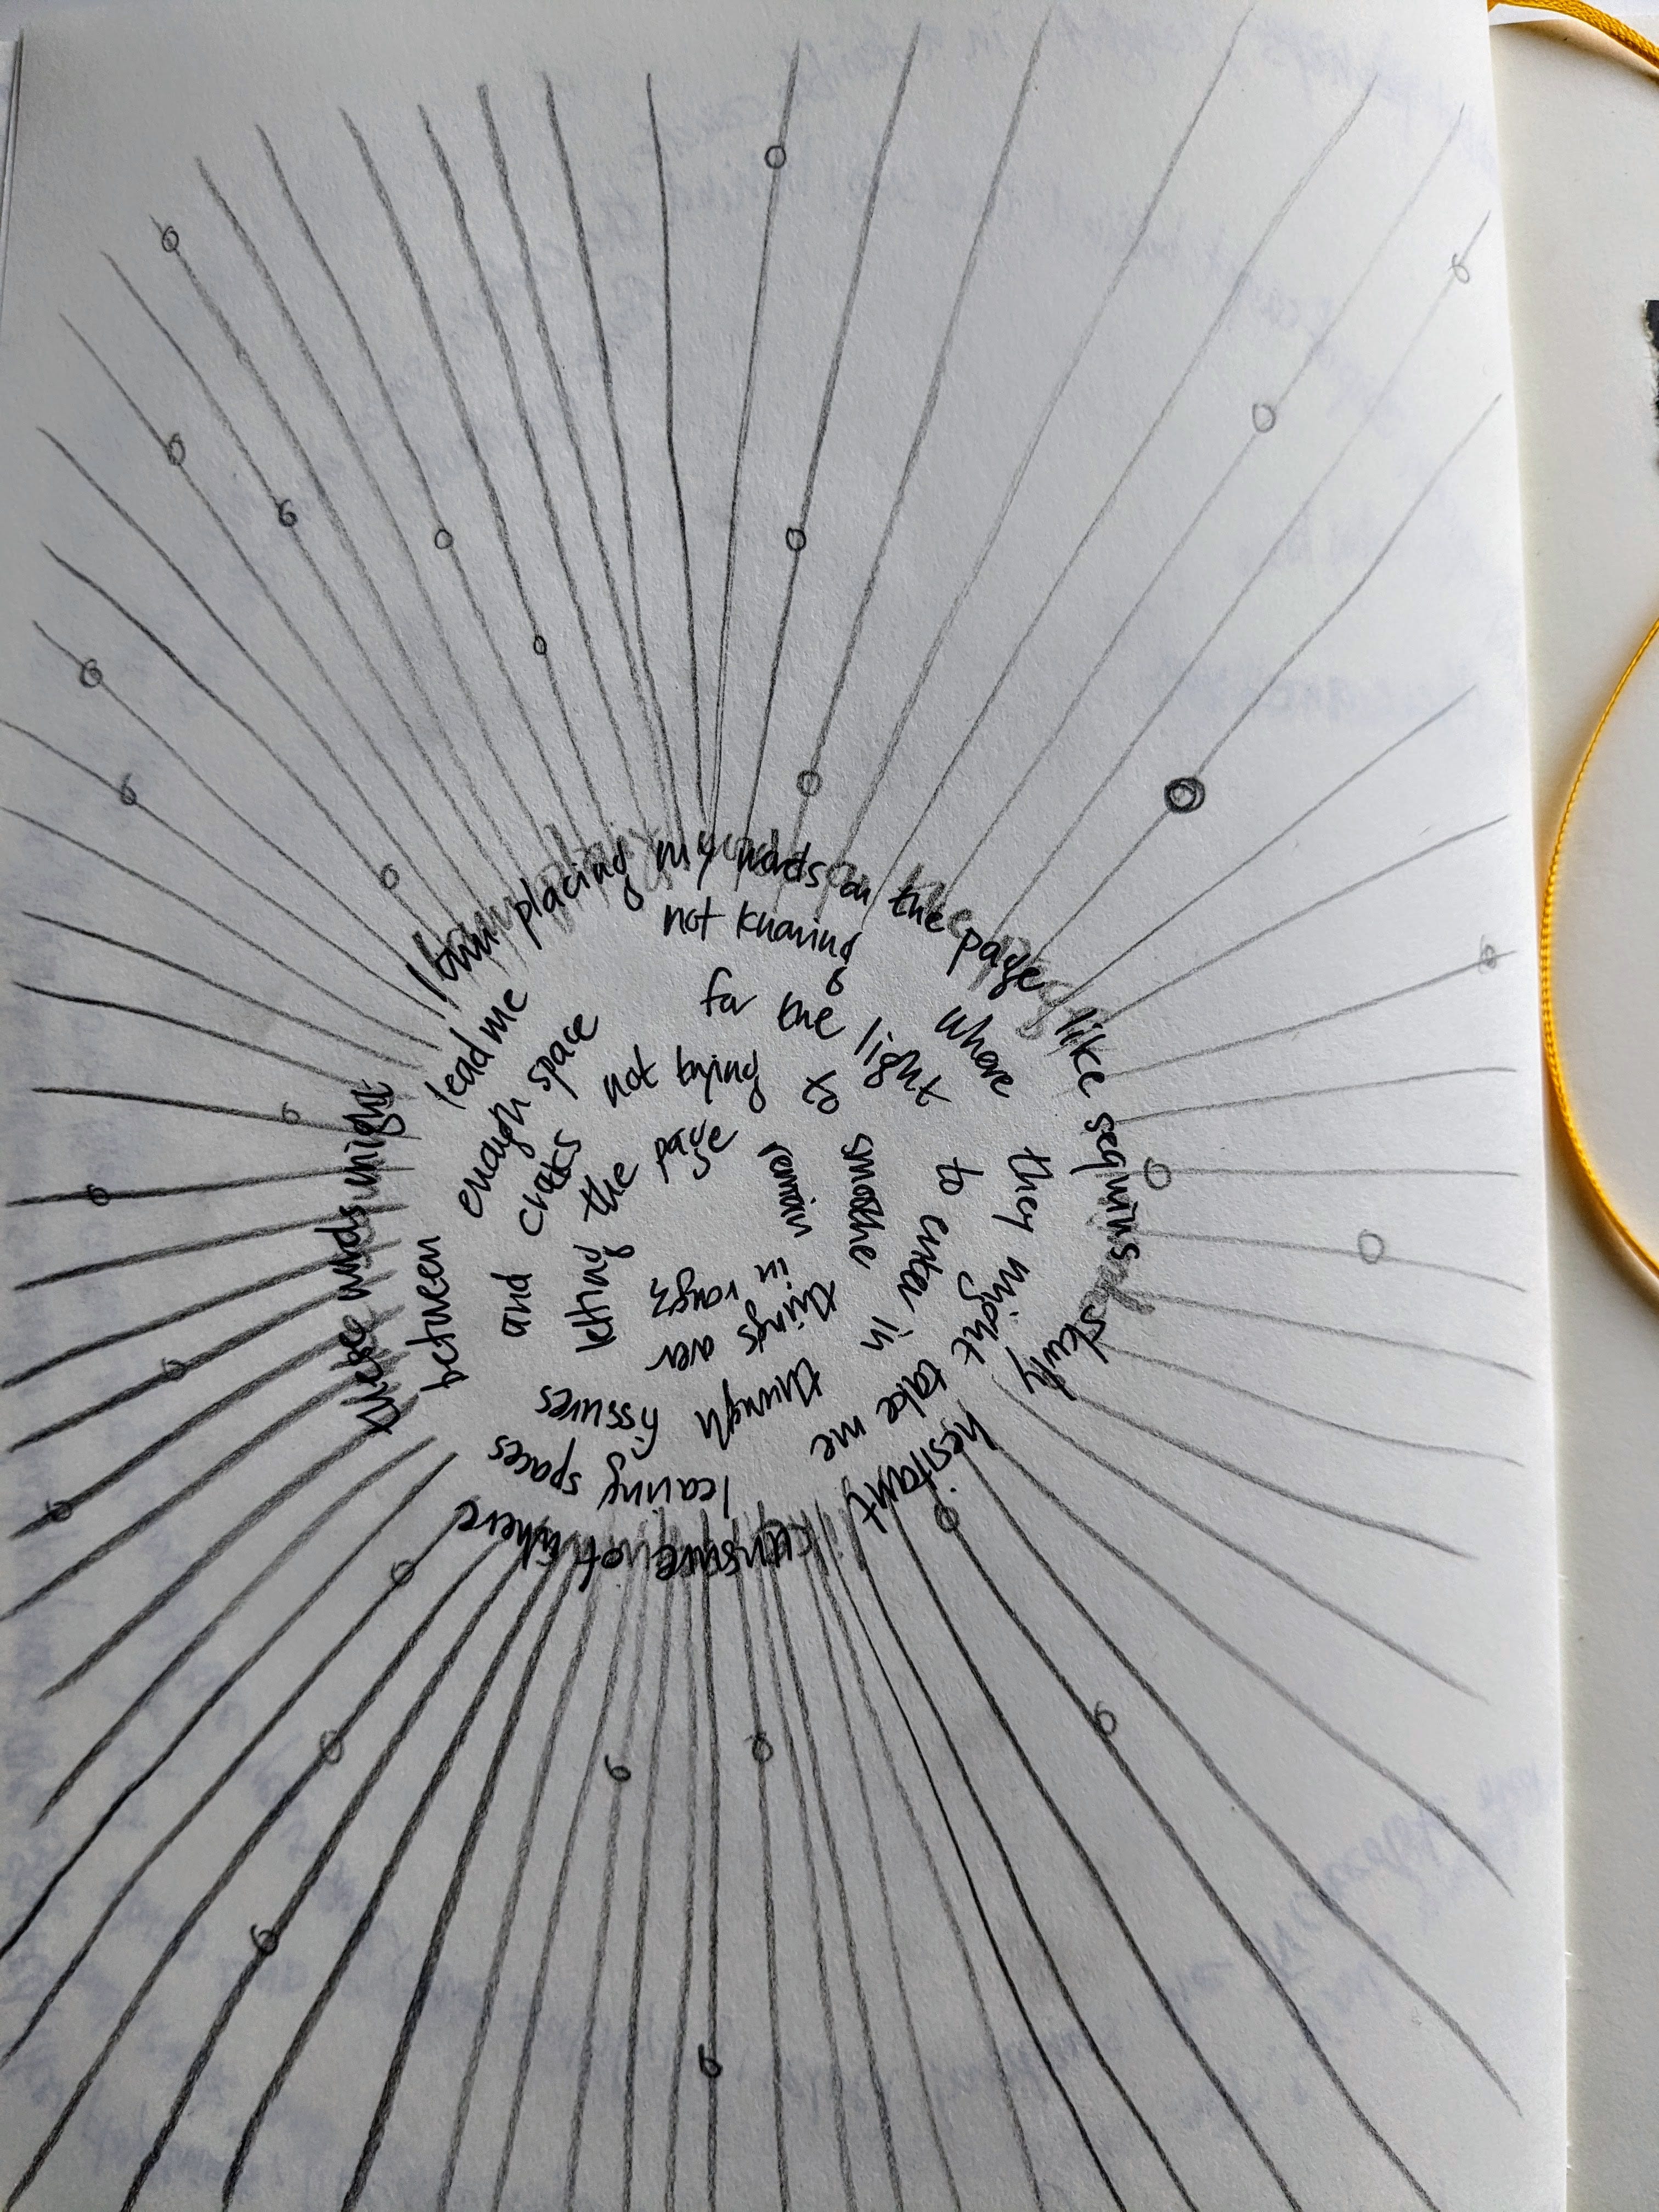 I am placing my words on the page like sequins slowly hesitant unsure of where these words might
lead me not knowing where they might take me leaving spaces between
enough space for the light to enter in through fissures and cracks
not trying to smoothe things over letting the page remain in rough